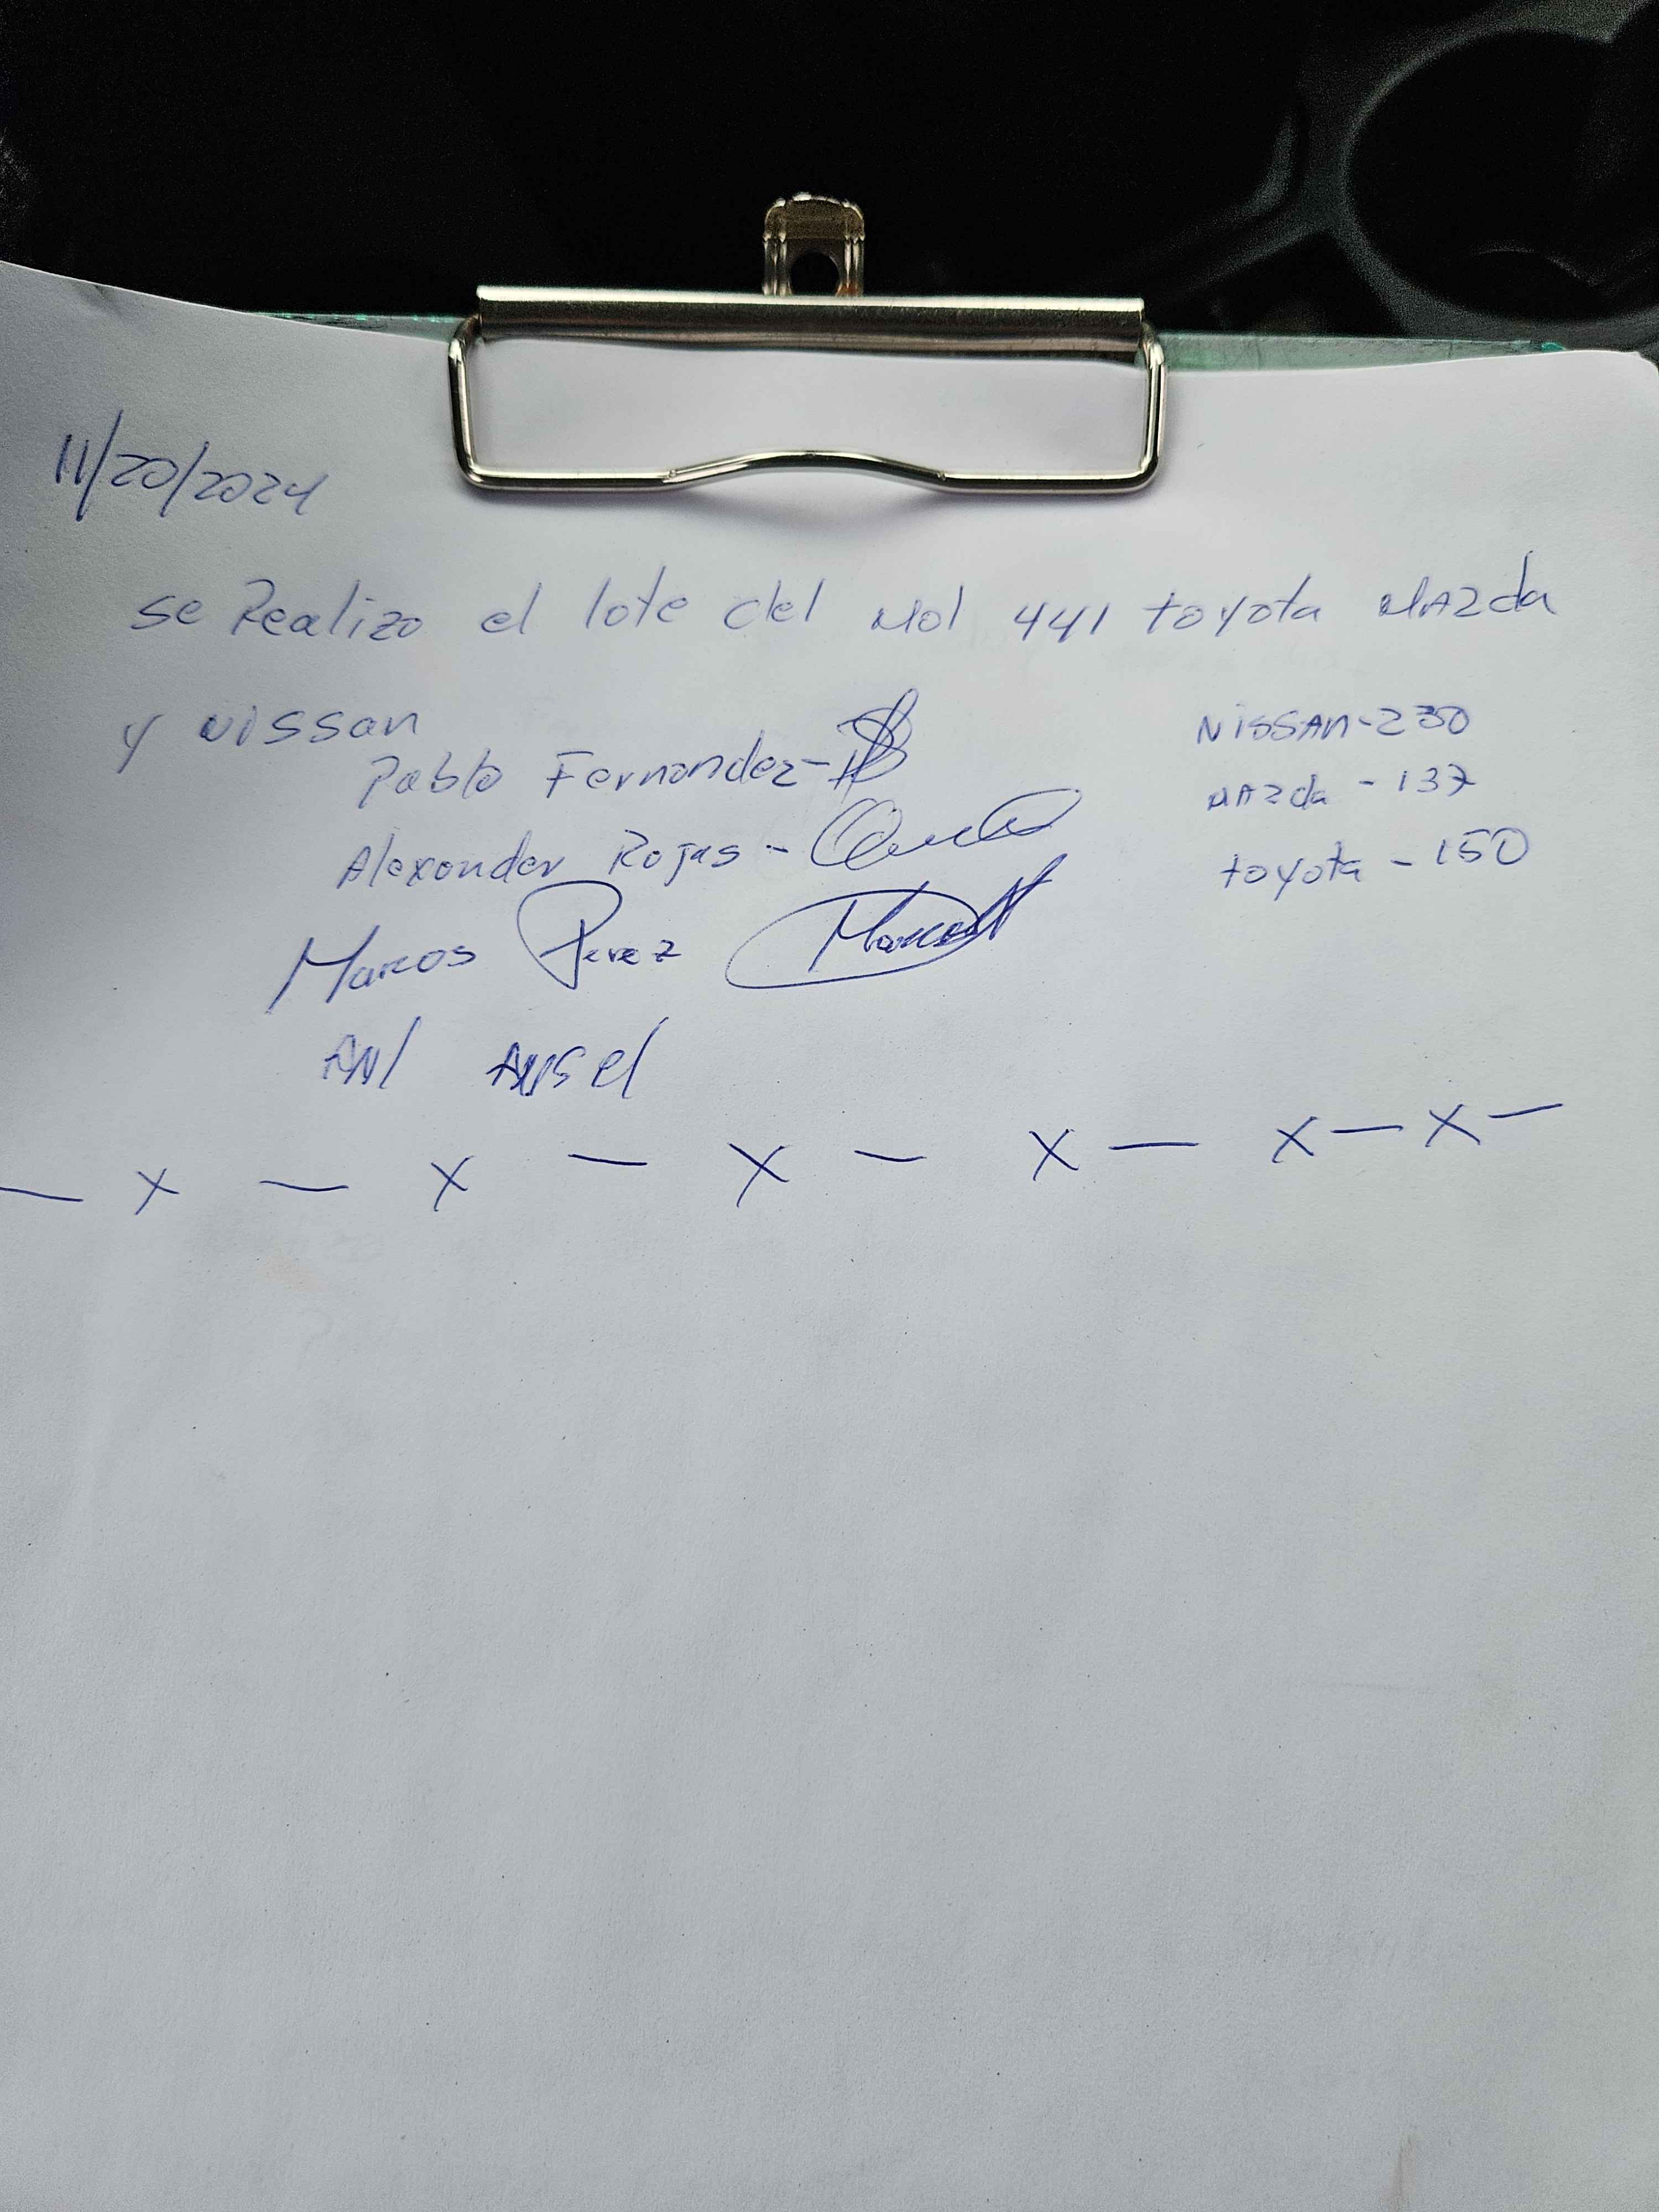 11/20/2024
se Realizo el lote del Mol 441 toyota MAZda
y Nissan
Pablo Fernandez-
Alexander Rojas -
Marcos Perez Marcos
Angel
NiSSAn-230
MAzda - 137
toyota - 150
— X — X — X — X — X — X —